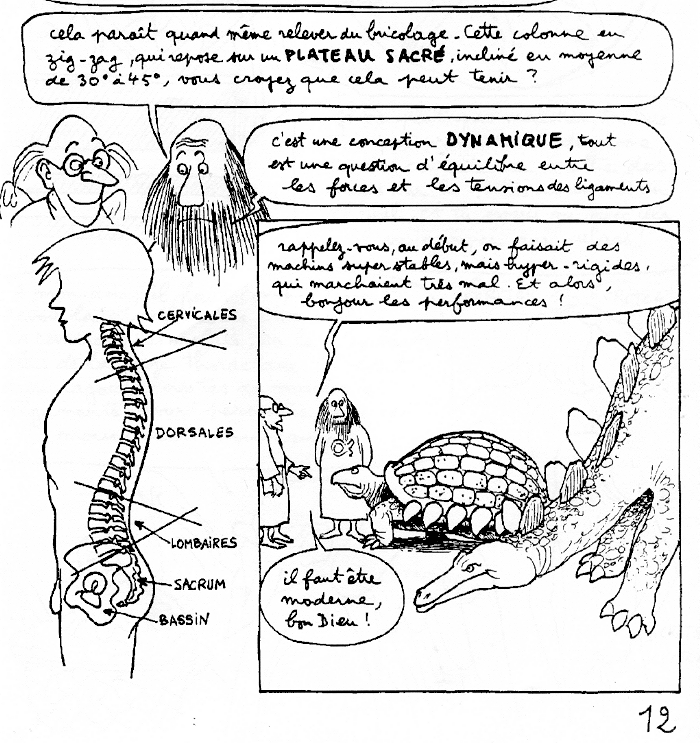 cela paraît quand même relever du bricolage. Cette colonne en
zig-zag, qui repose sur un PLATEAU SACRÉ, incliné en moyenne
de 30° à 45°, vous croyez que cela peut tenir ?
c'est une conception DYNAMIQUE, tout
est une question d'équilibre entre
les forces et les tensions des ligaments
rappelez-vous, au début, on faisait des
machins super stables, mais hyper-rigides,
qui marchaient très mal. Et alors,
bonjour les performances !
CERVICALES
DORSALES
LOMBAIRES
SACRUM
BASSIN
il faut être
moderne,
bon Dieu !
12